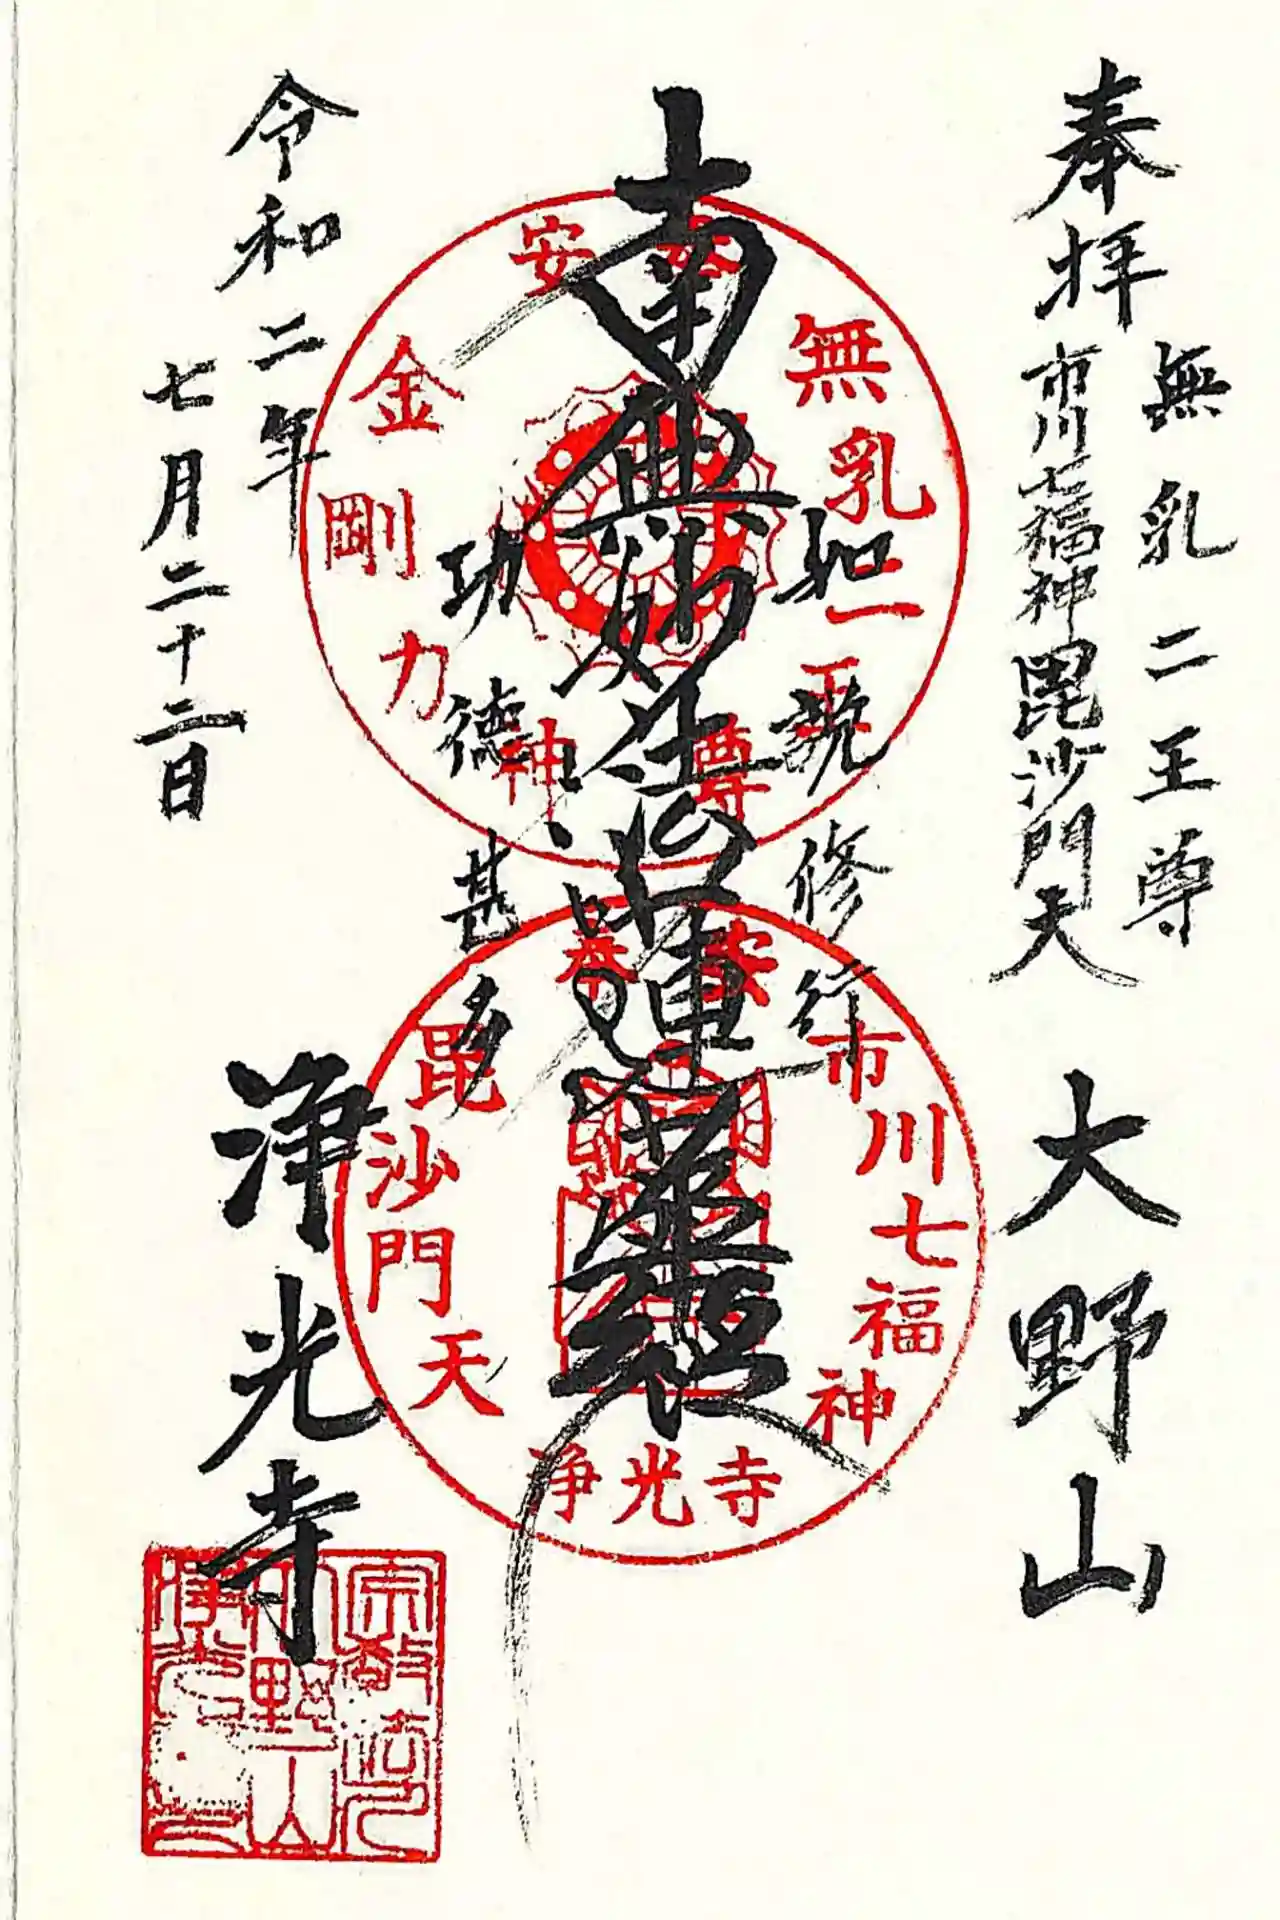 奉拝
無乳二王尊
市川七福神毘沙門天
大野山
如説修行
南無妙法蓮華経
功徳甚多
令和二年
七月二十二日
浄光寺
無乳二王尊
安
金剛力
神
安奉
市川七福神
毘沙門天
浄光寺
宗教法人
大野山
浄光